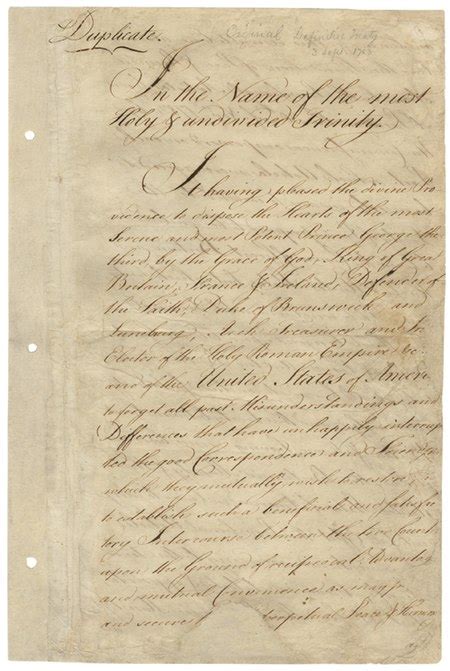 Duplicate.
Original Definitive Treaty
3 Sept. 1783
In the Name of the most
Holy & undivided Trinity.
It having pleased the divine Pro
vidence to dispose the Hearts of the most
Serene and most Potent Prince George the
third, by the Grace of God, King of Great
Britain, France & Ireland, Defender of
the Faith, Duke of Brunswick and
Luneburg, Arch Treasurer and
Elector of the Holy Roman Empire &c
and of the United States of Ameri
to forget all past Misunderstandings and
Differences that have unhappily interrup
ted the good Correspondence and
which they mutually wish to restore,
to establish such a beneficial and satisfac
tory Intercourse between the two Count
upon the Ground of reciprocal Advantag
and mutual Convenience as may
and secure perpetual Peace & Harmon